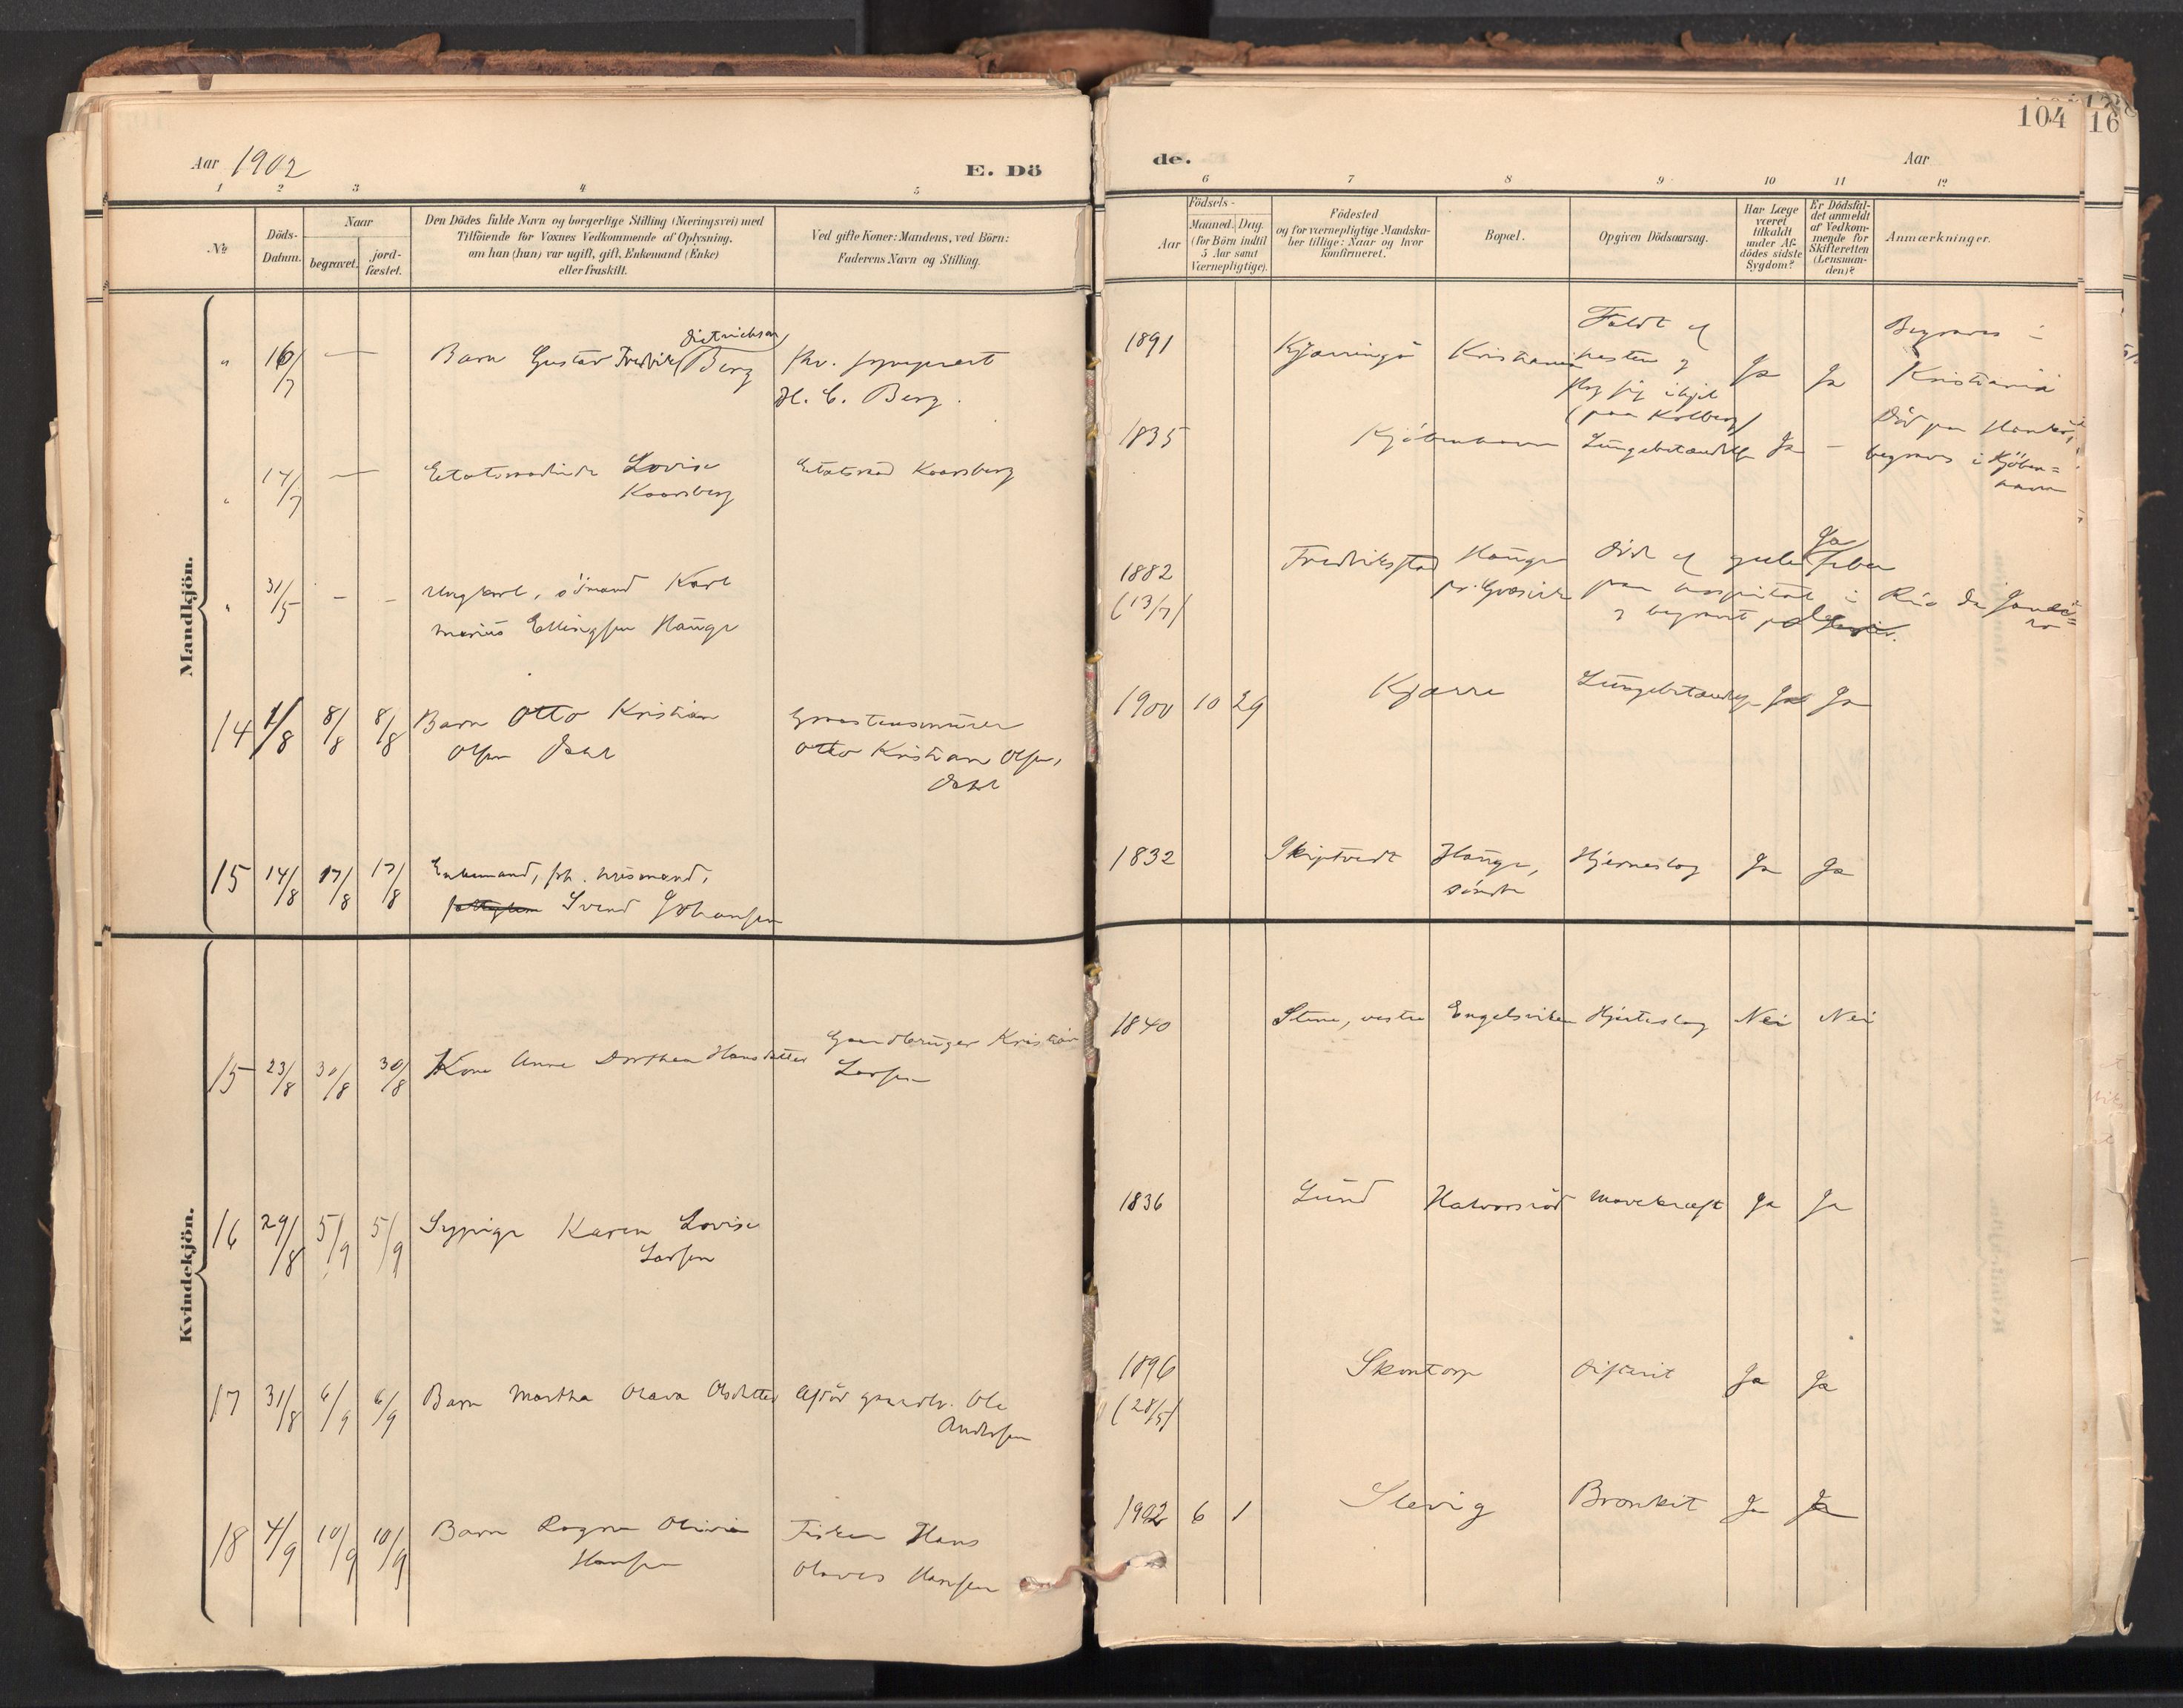 104
16
Aar 1902
E. Dö
de.
Aar
1 2 3 4 5
6 7 8 9 10 11 12
No
Döds-
Datum.
Naar
begravet.
jord-
fæstet.
Den Dödes fulde Navn og borgerlige Stilling (Næringsvei) med
Tilföiende for Voxnes Vedkommende af Oplysning,
om han (hun) var ugift, gift, Enkemand (Enke)
eller fraskilt.
Ved gifte Koner: Mandens, ved Börn:
Faderens Navn og Stilling.
Födsels-
Aar
Maaned. Dag.
(for Börn indtil
5 Aar samt
Værnepligtige).
Födested
og for værnepligtige Mandska-
ber tillige: Naar og hvor
konfirmeret.
Bopæl.
Opgiven Dödsaarsag.
Har Læge
været
tilkaldt
under Af-
dödes sidste
Sygdom?
Er Dödsfal-
det anmeldt
af Vedkom-
mende for
Skifteretten
(Lensman-
den)?
Anmærkninger.
Mandkjön.
" 16/7 —
Barn Gustav Fredrik Dietrichson Berg
H. C. Berg.
1891
Kristiania
Faldt af
hesten og
slog sig ihjel
(paa Kolberg)
Ja Ja
Begraves i
Kristiania
" 14/7 —
Etatsraadinde Lovise
Kaarsberg
Etatsraad Kaarsberg
1835
Kjöbenhavn
Lungebetændelse
Ja —
Död paa Hankö,
begraves i Kjöben=
havn
" 31/5 - -
Ungkarl, sömand Karl
Marius Ellingsen Hauge
1882
(13/7)
Fredriksstad
Hauge
pr. Græsvik
Död af gule feber
paa hospital i Rio de Janei=
ro
og begravet
Ja
14 1/8 8/8 8/8
Barn Otto Kristian
Olsen Dahl
Graastensmurer
Otto Kristian Olsen,
Dahl
1900 10 29
Kjærre
Lungebetændelse
Ja Ja
15 14/8 17/8 17/8
Enkemand, fhv. husmand,
Svend Johansen
1832
Skiptvedt
Hauge,
söndre
Hjerneslag
Ja Ja
Kvindekjön.
15 23/8 30/8 30/8
Kone Anne Dorthea Hansdatter
Gaardbruger Kristian
Larsen
1840
Stene, vestre
Engelsviken
Hjerteslag
Nei Nei
16 29/8 5/9 5/9
Sypige Karen Lovise
Larsen
1836
Lund
Halvorsröd
Mavekræft
Ja Ja
17 31/8 6/9 6/9
Barn Martha Olava Olsdatter
Afdöd gaardbr. Ole
Andersen
1896
(28/5)
Skontorp
Difterit
Ja Ja
18 4/9 10/9 10/9
Barn Ragna Olivia
Hansen
Fisker Hans
Olaves Hansen
1902 6 1
Slevig
Bronkit
Ja Ja